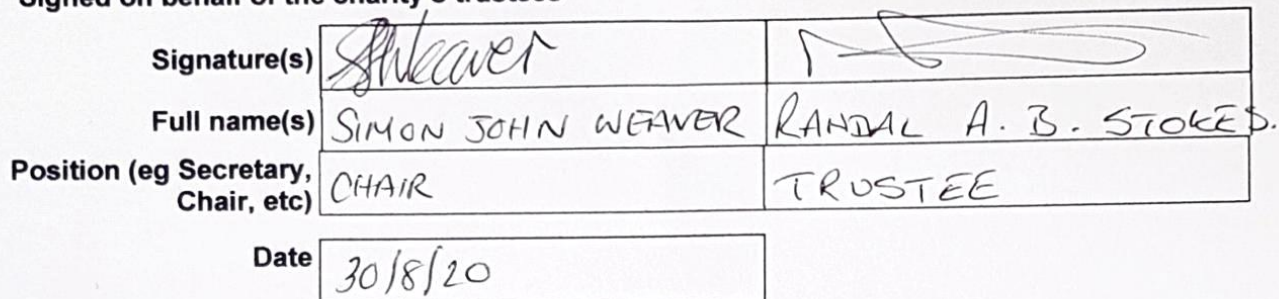 Signed on behalf of the charity's trustees
Signature(s) SWeaver
Full name(s) SIMON JOHN WEAVER RANDAL A. B. STOKES.
Position (eg Secretary, CHAIR TRUSTEE
Chair, etc)
Date 30/8/20